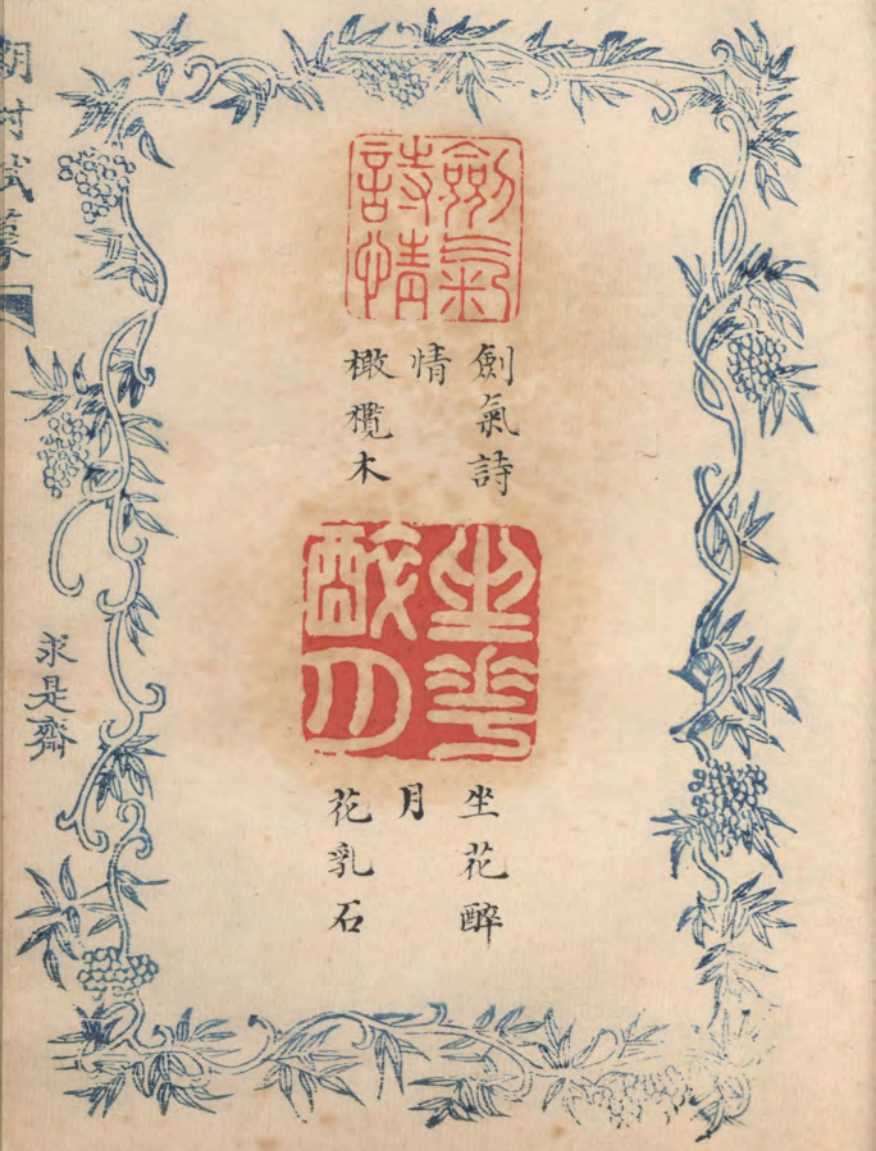 劍氣詩情
劍氣詩
情
橄欖木
坐花醉月
坐花醉
月
花乳石
求是齋